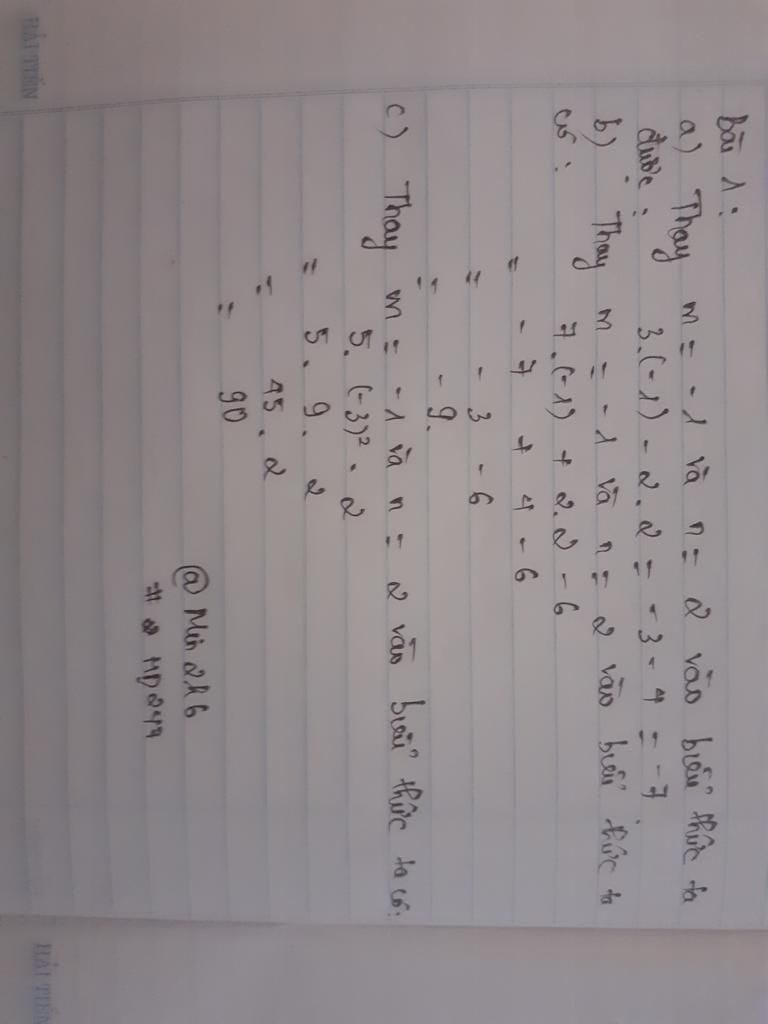 Bài 1:
a) Thay m = -1 và n = 2 vào biểu thức ta
được: 3.(-1) - 2.2 = -3 - 4 = -7
b) Thay m = -1 và n = 2 vào biểu thức ta
có: 7.(-1) + 2.2 - 6
= -7 + 4 - 6
= -3 - 6
= -9.
c) Thay m = -1 và n = 2 vào biểu thức ta có:
5.(-3)² . 2
= 5 . 9 . 2
= 45 . 2
= 90
HẢI TIẾN
HẢI TIẾN